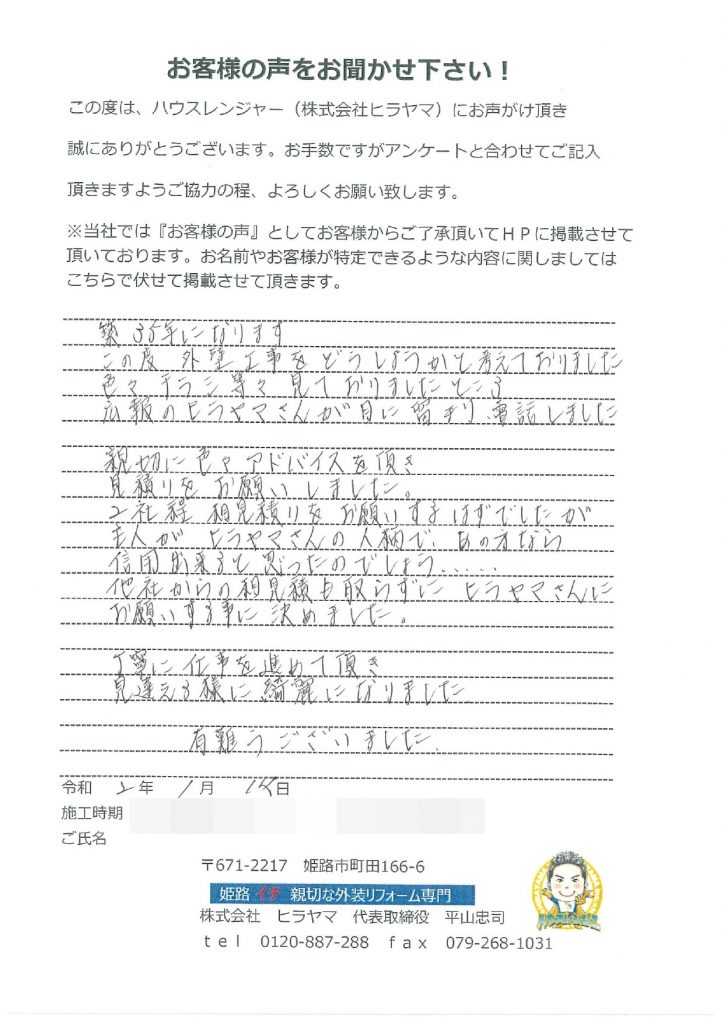 お客様の声をお聞かせ下さい！
この度は、ハウスレンジャー（株式会社ヒラヤマ）にお声がけ頂き
誠にありがとうございます。お手数ですがアンケートと合わせてご記入
頂きますようご協力の程、よろしくお願い致します。
※当社では『お客様の声』としてお客様からご了承頂いてＨＰに掲載させて
頂いております。お名前やお客様が特定できるような内容に関しましては
こちらで伏せて掲載させて頂きます。
築35年になります
この度 外壁工事をどうしようかと考えておりました
色々チラシ等々見ておりましたところ
広報のヒラヤマさんが目に留まり、電話しました
親切に色々アドバイスを頂き
見積りをお願いしました。
2社程 相見積りをお願いするはずでしたが
主人がヒラヤマさんの人柄で、あの方なら
信用出来ると思ったのでしょう......
他社からの相見積も取らずにヒラヤマさんに
お願いする事に決めました。
丁寧に仕事を進めて頂き
見違える様に綺麗になりました
有難うございました。
令和 2年 1月 15日
施工時期
ご氏名
〒671-2217 姫路市町田166-6
姫路 イチ 親切な外装リフォーム専門
株式会社 ヒラヤマ 代表取締役 平山忠司
ｔｅｌ 0120-887-288 ｆａｘ 079-268-1031